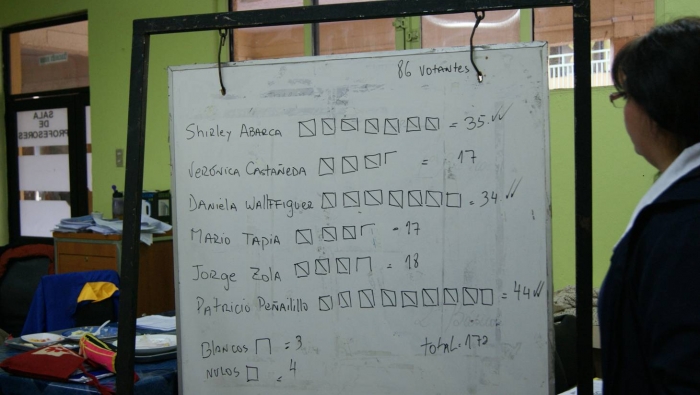 86 VOTANTES
SHIRLEY ABARCA = 35
VERÓNICA CASTAÑEDA = 17
DANIELA WALFFIGUER = 34
MARIO TAPIA = 17
JORGE ZOLA = 18
PATRICIO PEÑAILILLO = 44
BLANCOS = 3
NULOS = 4
TOTAL = 172
SALA
DE
PROFESORES